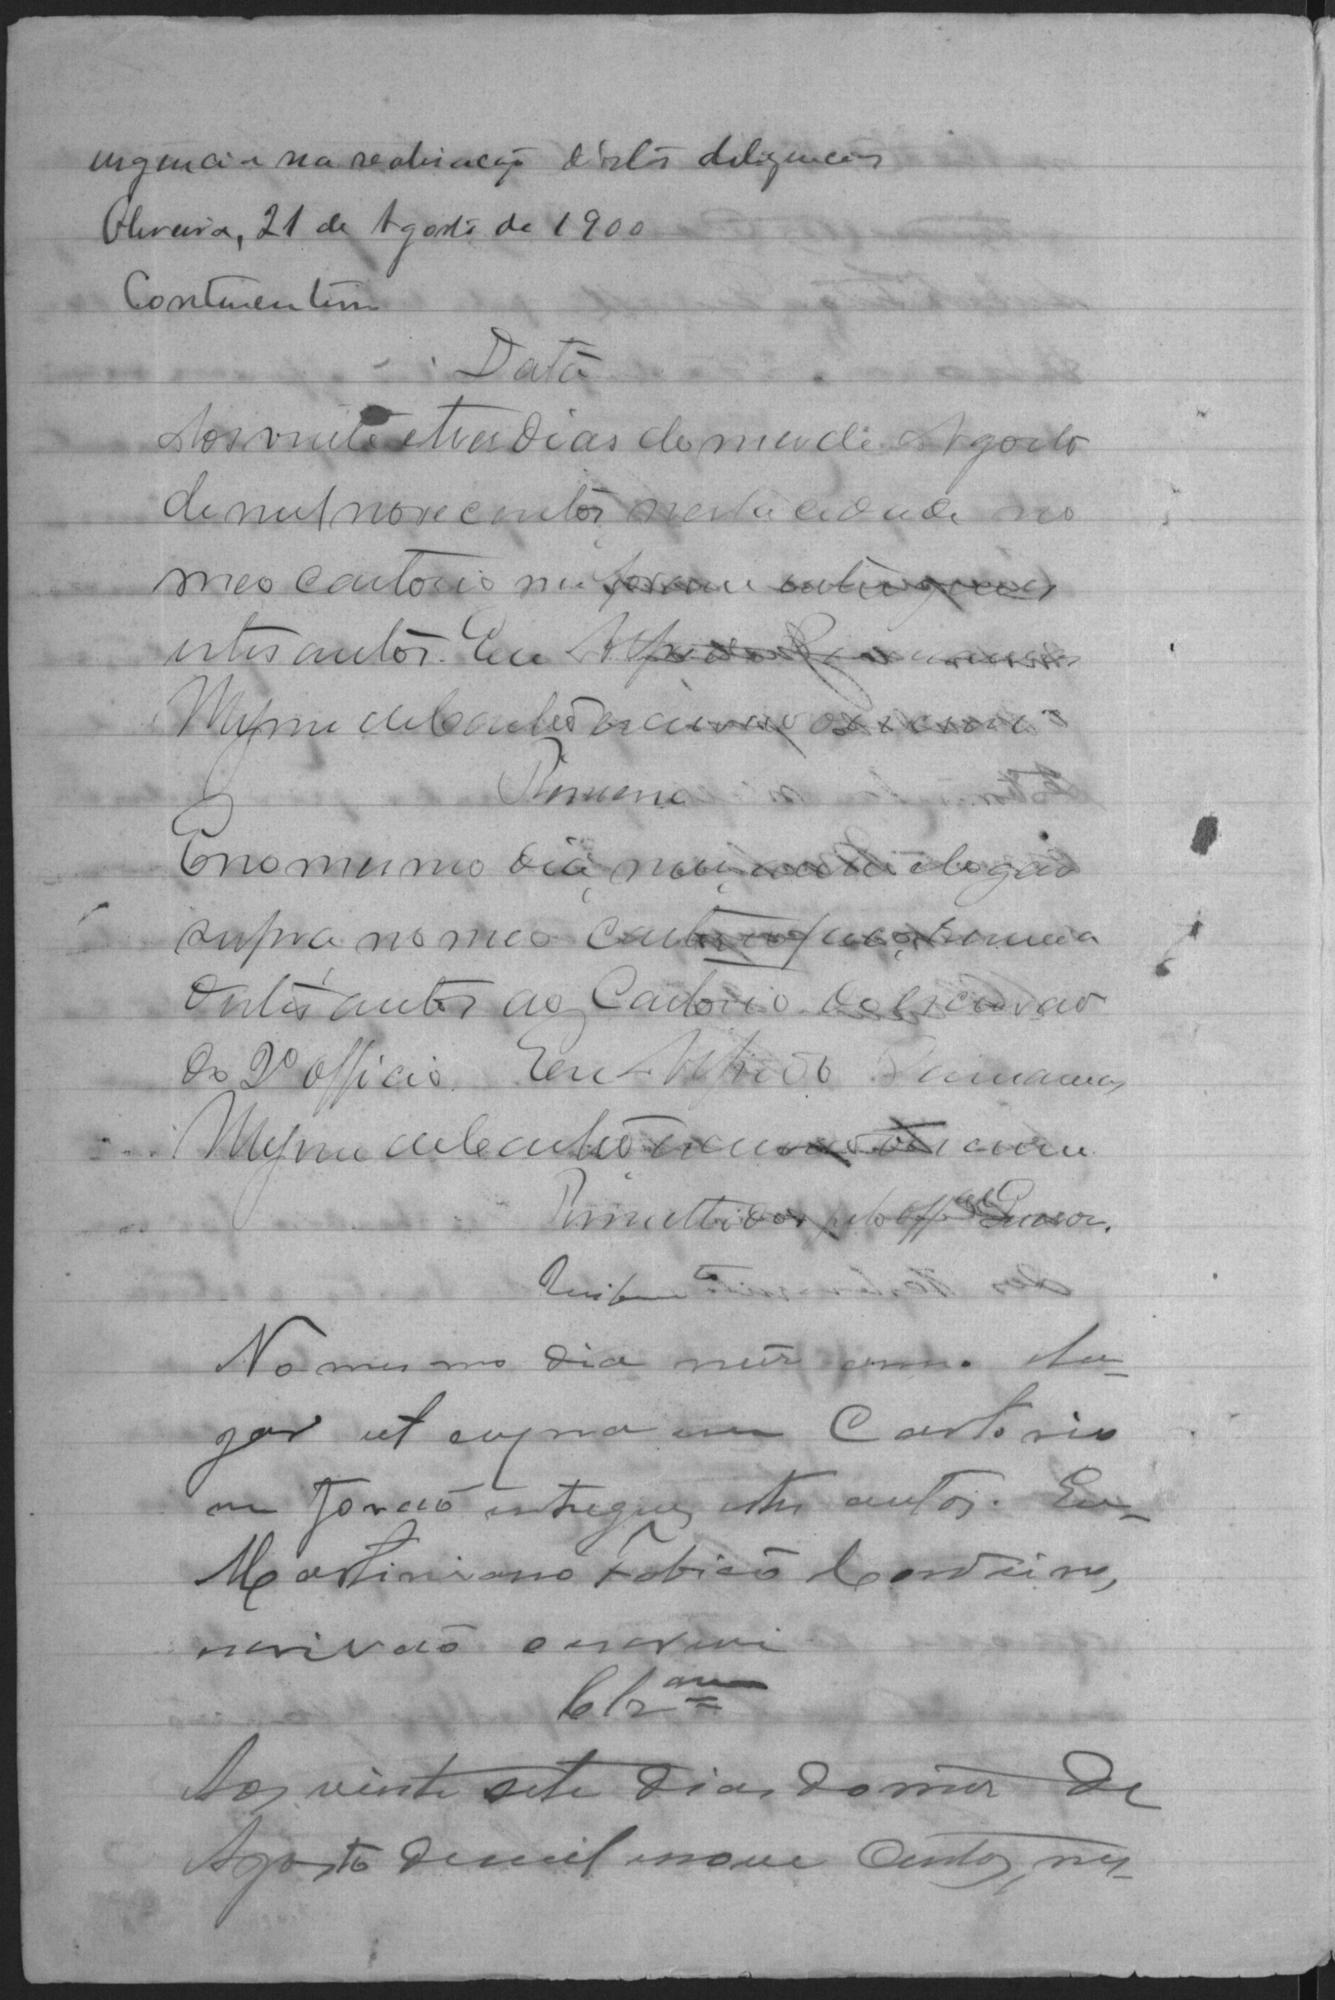 urgencia na realisação d'estas diligencias
Oliveira, 21 de Agosto de 1900
Continentino
Data
Aos vinte e tres dias do mez de Agosto
de mil novecentos, nesta cidade no
meo cartorio me foram entregues
estes autos. Eu Alfredo
de Castro escrivão o escrevi
Remessa
E no mesmo dia, mez, anno e logar
supra no meo cartorio faço remessa
destes autos ao Cartorio do escrivão
do 2º officio. Eu Alfredo
de Castro escrivão o escrevi
Remettidos pelo
Recebimto
No mesmo dia mez anno e lu-
gar ut supra em Cartorio
me forão entregues estes autos. Eu
Martiniano Fabião Cordeiro,
escrivão o escrevi
Clzam
Aos vinte sete dias do mez de
Agosto de mil nove centos, nes-